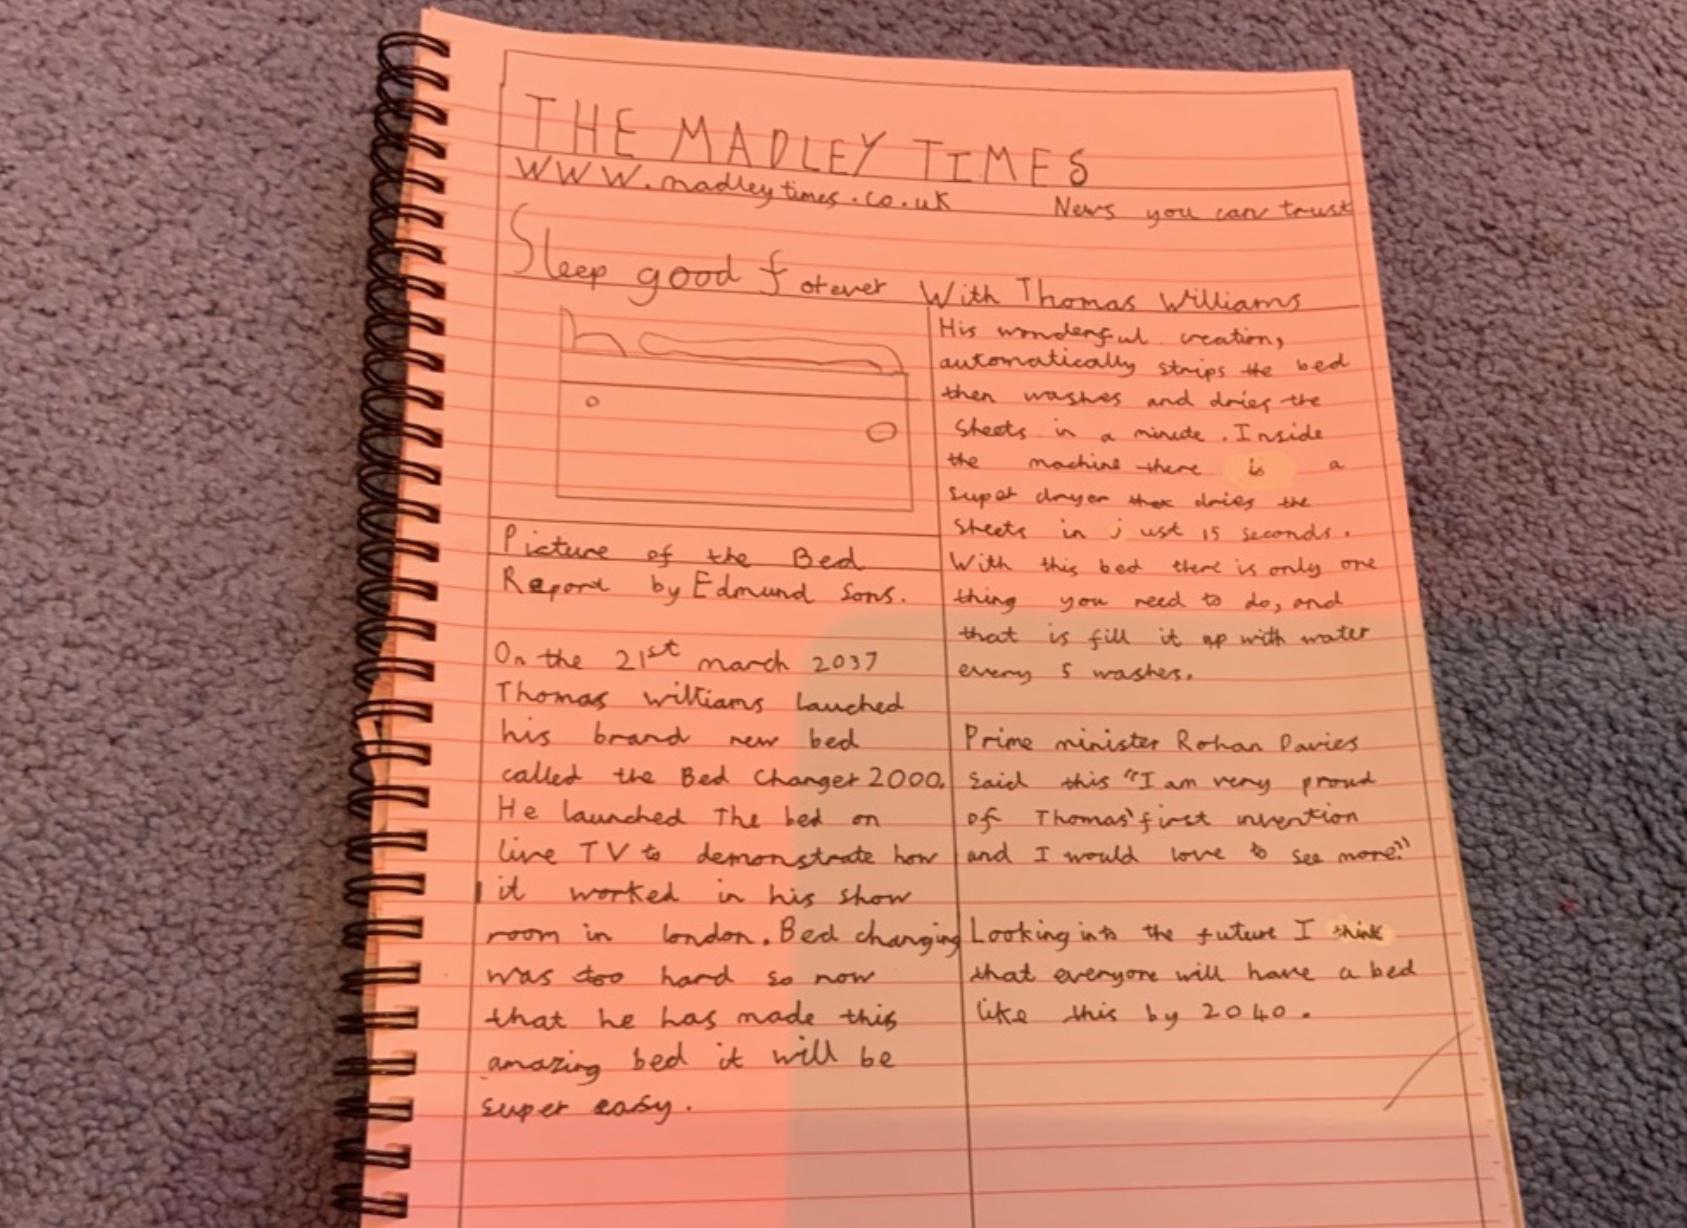 THE MADLEY TIMES
WWW.madleytimes.co.uk News you can trust
Sleep good forever With Thomas Williams
Picture of the Bed
Report by Edmund Sons.
On the 21st march 2037
Thomas williams lauched
his brand new bed
called the Bed Changer 2000.
He launched The bed on
live TV to demonstrate how
it worked in his show
room in london. Bed changing
was too hard so now
that he has made this
amazing bed it will be
super easy.
His wonderful creation,
automatically strips the bed
then washes and dries the
sheets in a minute. Inside
the machine there is a
super dryer that dries the
sheets in just 15 seconds.
With this bed there is only one
thing you need to do, and
that is fill it up with water
every 5 washes.
Prime minister Rohan Davies
said this "I am very proud
of Thomas' first invention
and I would love to see more."
Looking into the future I think
that everyone will have a bed
like this by 2040.